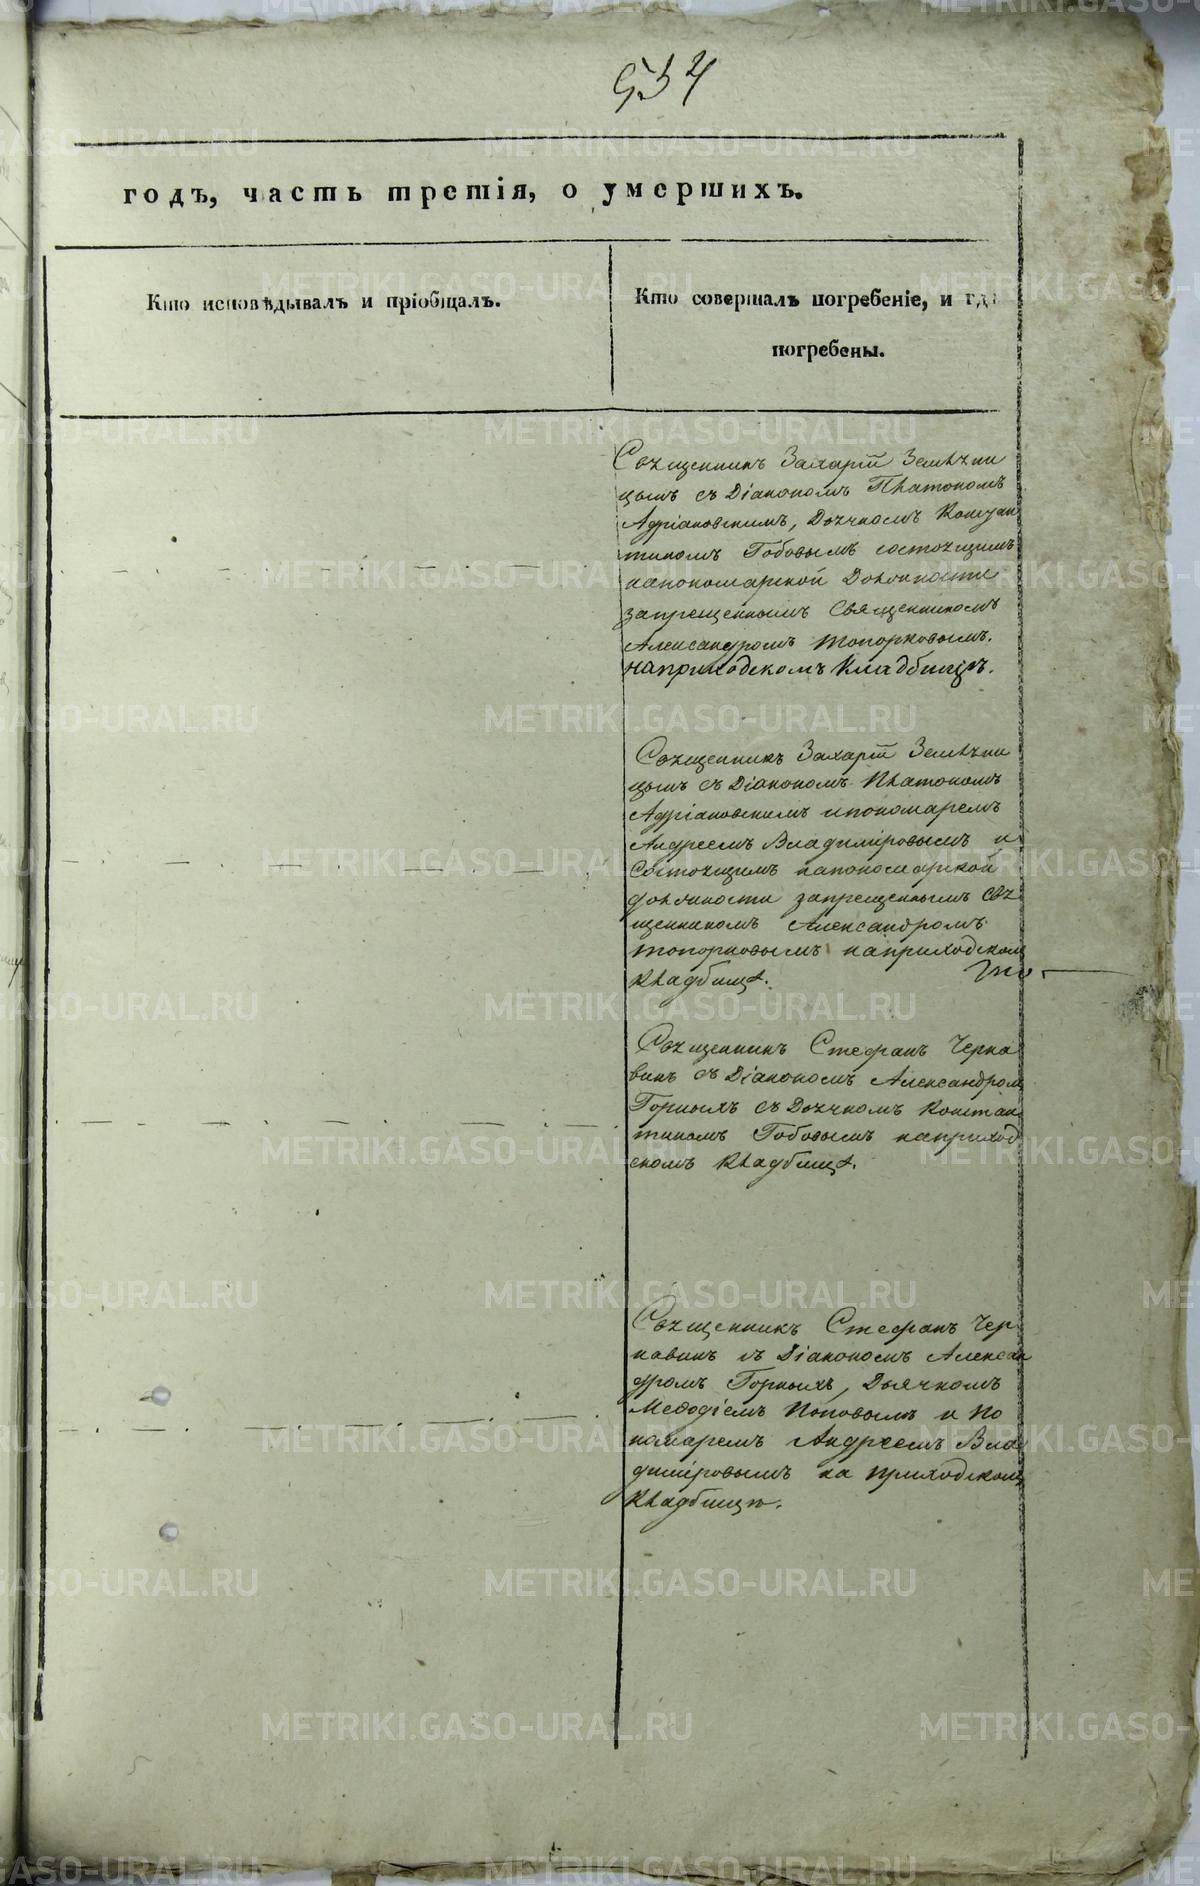 534
годъ, часть третія, о умершихъ.
Кто исповѣдывалъ и пріобщалъ.
Кто совершалъ погребеніе, и гдѣ
погребены.
Священникъ Захарій Земляни
цынъ съ Діакономъ Платономъ
Адріановскимъ, Дьячкомъ Констан
тиномъ Гобовымъ состоящимъ
напономарской Должности
запрещеннымъ Священникомъ
Александромъ Топорковымъ.
наприходскомъ Кладбищѣ.
Священникъ Захарій Земляни
цынъ съ Діакономъ Платономъ
Адріановскимъ ипономаремъ
Андреемъ Владиміровымъ и
Состоящимъ напономарской
должности запрещеннымъ Свя
щенникомъ Александромъ
Топорковымъ наприходском
Кладбищѣ.
Священникъ Стефанъ Черна
винъ съ Діакономъ Александром
Горныхъ съ Дьячкомъ Констан
тиномъ Гобовымъ наприход
скомъ Кладбищѣ.
Священникъ Стефанъ Чер
навинъ съ Діакономъ Алексан
дромъ Горныхъ, Дьячкомъ
Меѳодіемъ Поповымъ и По
номаремъ Андреемъ Вла
диміровымъ на приходском
Кладбищѣ.
METRIKI.GASO-URAL.RU